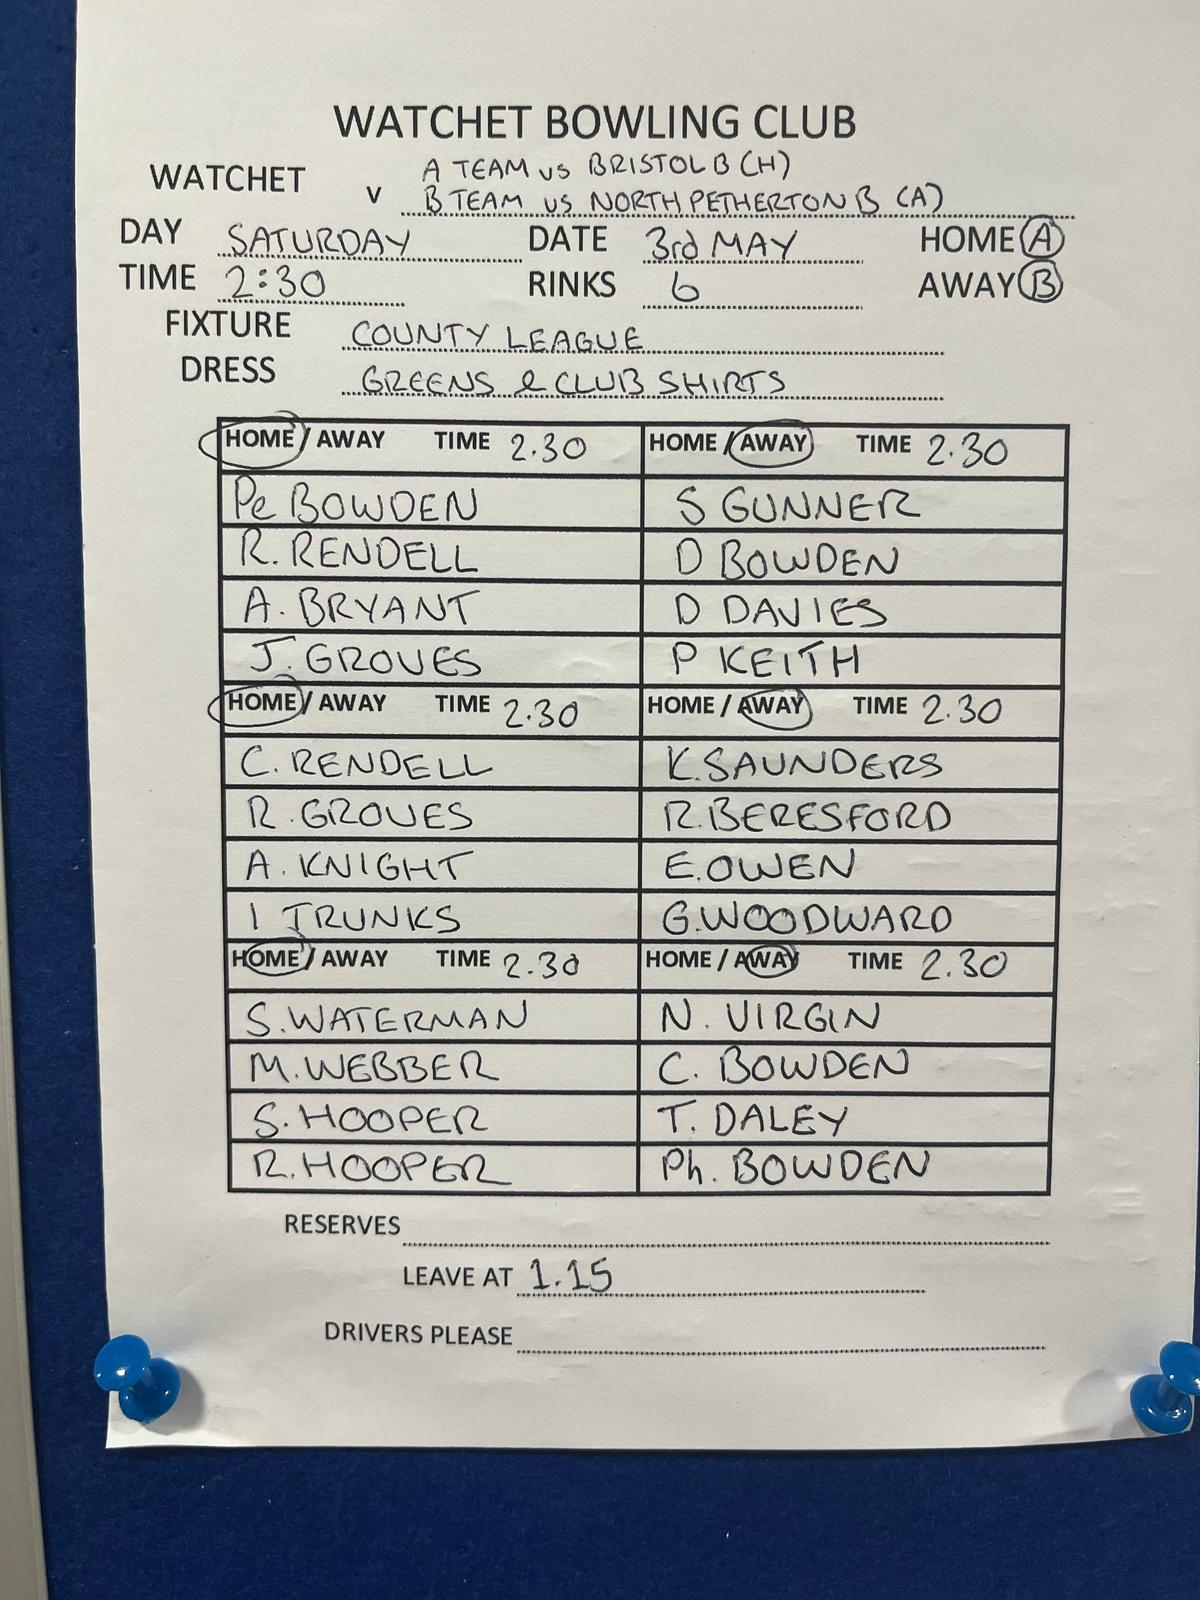 WATCHET BOWLING CLUB
WATCHET v A TEAM vs BRISTOL B (H)
B TEAM vs NORTH PETHERTON B (A)
DAY SATURDAY DATE 3rd MAY HOME A
TIME 2:30 RINKS 6 AWAY B
FIXTURE COUNTY LEAGUE
DRESS GREENS & CLUB SHIRTS
HOME / AWAY TIME 2.30 HOME / AWAY TIME 2.30
Pe BOWDEN S GUNNER
R. RENDELL D BOWDEN
A. BRYANT D DAVIES
J. GROVES P KEITH
HOME / AWAY TIME 2.30 HOME / AWAY TIME 2.30
C. RENDELL K. SAUNDERS
R. GROVES R. BERESFORD
A. KNIGHT E. OWEN
I TRUNKS G. WOODWARD
HOME / AWAY TIME 2.30 HOME / AWAY TIME 2.30
S. WATERMAN N. VIRGIN
M. WEBBER C. BOWDEN
S. HOOPER T. DALEY
R. HOOPER Ph. BOWDEN
RESERVES
LEAVE AT 1.15
DRIVERS PLEASE